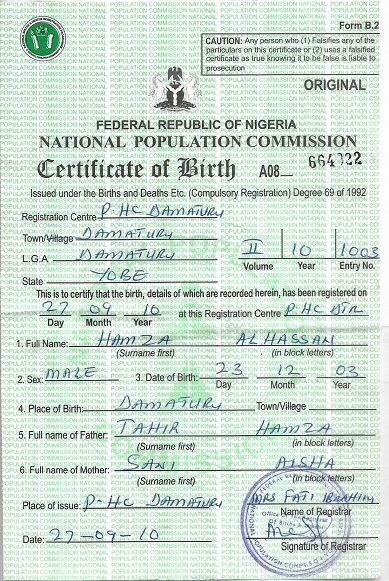 Form B.2
CAUTION: Any person who (1) Falsifies any of the
particulars on this certificate or (2) uses a falsified
certificate as true knowing it to be false is liable to
prosecution
ORIGINAL
FEDERAL REPUBLIC OF NIGERIA
NATIONAL POPULATION COMMISSION
Certificate of Birth A08—
Issued under the Births and Deaths Etc. (Compulsory Registration) Degree 69 of 1992
Registration Centre P HC DAMATURU
Town/Village DAMATURU
L.G.A DAMATURU II 10 1003
Volume Year Entry No.
State YOBE
This is to certify that the birth, details of which are recorded herein, has been registered on
27 09 10 at this Registration Centre P HC DTR
Day Month Year
1. Full Name: HAMZA ALHASSAN
(Surname first) (in block letters)
2. Sex: MALE 3. Date of Birth: 23 12 03
Day Month Year
4. Place of Birth: DAMATURU Town/Village
5. Full name of Father: TAHIR HAMZA
(Surname first) (in block letters)
6. Full name of Mother: SANI AISHA
(Surname first) (in block letters)
Place of issue: P-HC DAMATURU MRS FATI IBRAHIM
Name of Registrar
Date: 27-09-10
Signature of Registrar